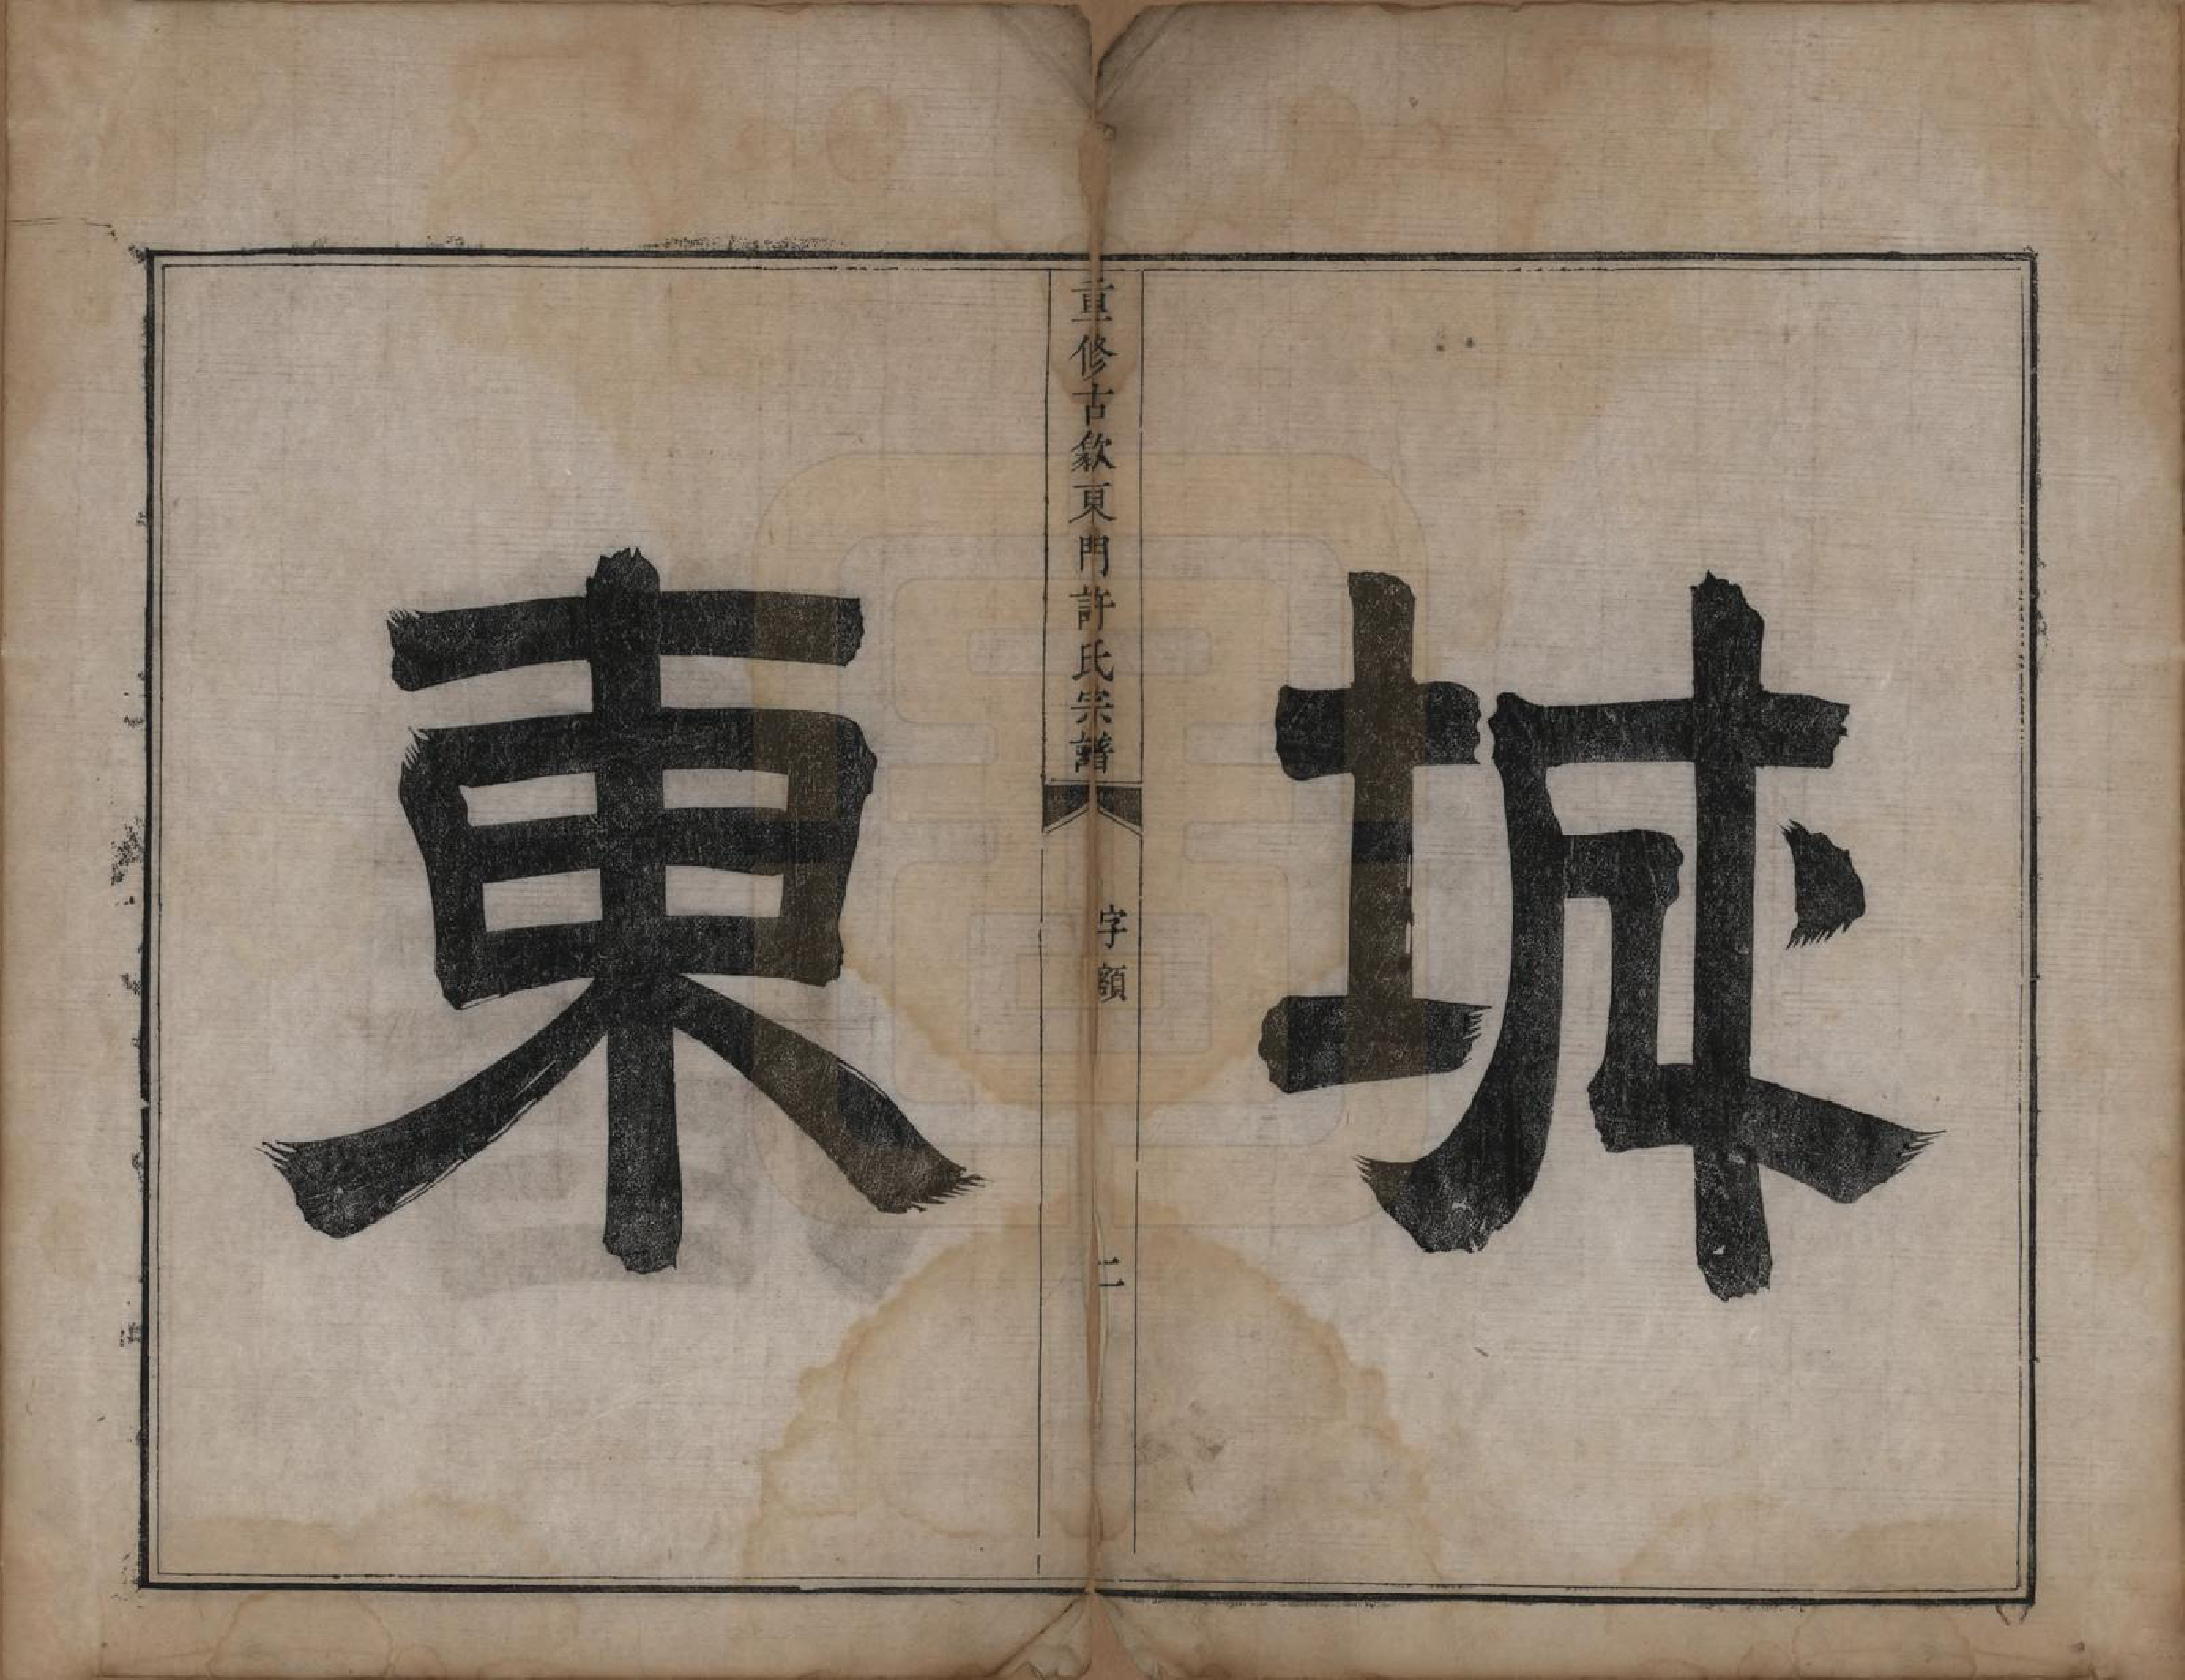 城
重修古歙東門許氏宗譜
字額
二
東